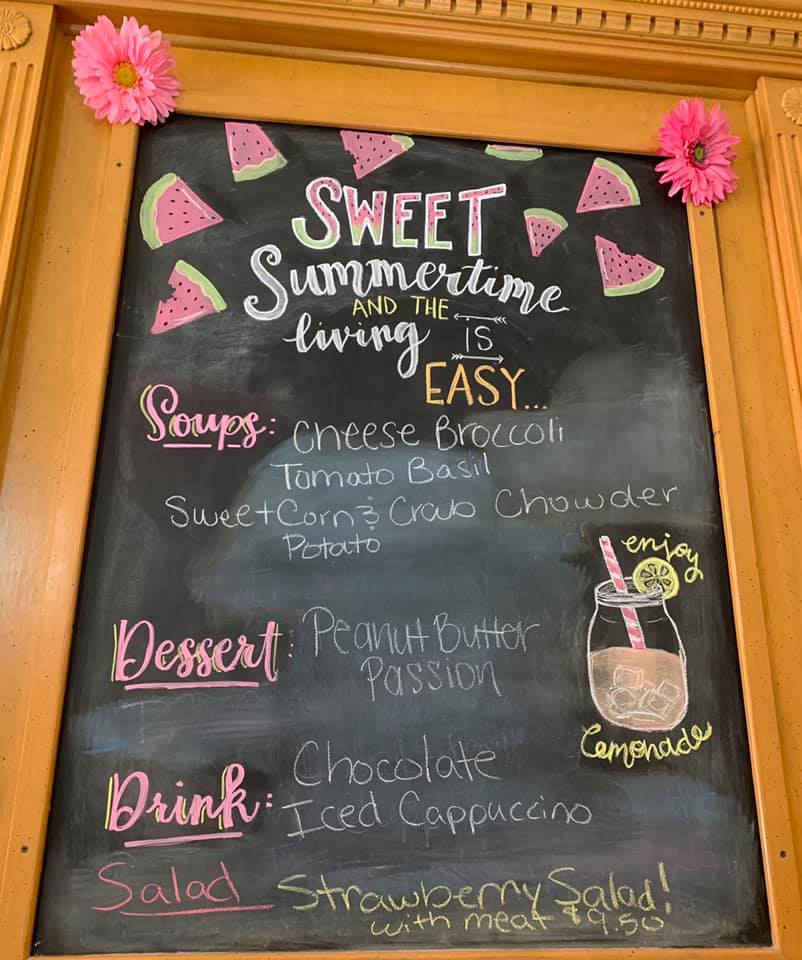 SWEET
Summertime
AND THE
living IS
EASY...
Soups: Cheese Broccoli
Tomato Basil
Sweet Corn & Crab Chowder
Potato
enjoy
Lemonade
Dessert: Peanut Butter
Passion
Drink: Chocolate
Iced Cappuccino
Salad Strawberry Salad!
with meat $9.50